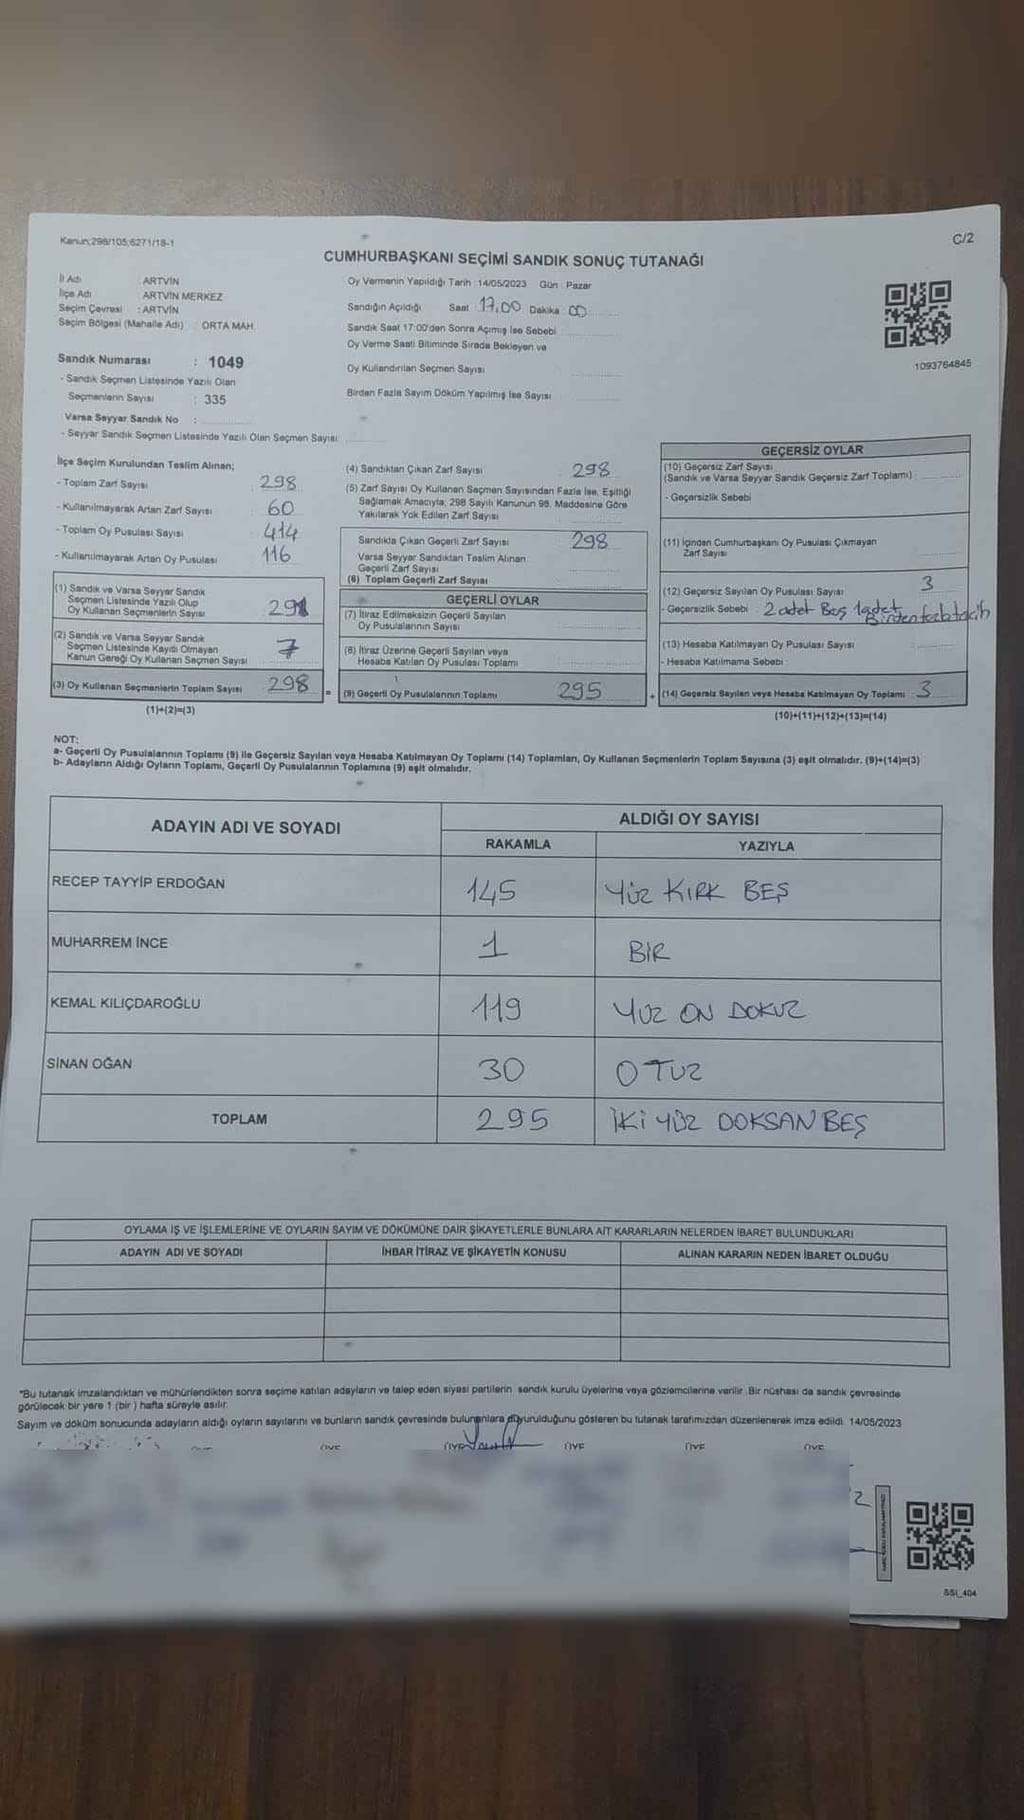 Kanun;298/105;6271/18-1
C/2
CUMHURBAŞKANI SEÇİMİ SANDIK SONUÇ TUTANAĞI
İl Adı : ARTVİN
İlçe Adı : ARTVİN MERKEZ
Seçim Çevresi : ARTVİN
Seçim Bölgesi (Mahalle Adı) : ORTA MAH.
Sandık Numarası : 1049
- Sandık Seçmen Listesinde Yazılı Olan
Seçmenlerin Sayısı : 335
Varsa Seyyar Sandık No :
- Seyyar Sandık Seçmen Listesinde Yazılı Olan Seçmen Sayısı:
Oy Vermenin Yapıldığı Tarih : 14/05/2023 Gün : Pazar
Sandığın Açıldığı Saat 17,00 Dakika 00
Sandık Saat 17:00'den Sonra Açmış İse Sebebi :
Oy Verme Saati Bitiminde Sırada Bekleyen ve
Oy Kullandırılan Seçmen Sayısı
Birden Fazla Sayım Döküm Yapılmış İse Sayısı
1093764845
İlçe Seçim Kurulundan Teslim Alınan;
- Toplam Zarf Sayısı 298
- Kullanılmayarak Artan Zarf Sayısı 60
- Toplam Oy Pusulası Sayısı 414
- Kullanılmayarak Artan Oy Pusulası 116
(1) Sandık ve Varsa Seyyar Sandık
Seçmen Listesinde Yazılı Olup
Oy Kullanan Seçmenlerin Sayısı 291
(2) Sandık ve Varsa Seyyar Sandık
Seçmen Listesinde Kayıtlı Olmayan
Kanun Gereği Oy Kullanan Seçmen Sayısı 7
(3) Oy Kullanan Seçmenlerin Toplam Sayısı 298
(1)+(2)=(3)
=
(4) Sandıktan Çıkan Zarf Sayısı 298
(5) Zarf Sayısı Oy Kullanan Seçmen Sayısından Fazla İse, Eşitliği
Sağlamak Amacıyla, 298 Sayılı Kanunun 98. Maddesine Göre
Yakılarak Yok Edilen Zarf Sayısı
Sandıkta Çıkan Geçerli Zarf Sayısı 298
Varsa Seyyar Sandıktan Teslim Alınan
Geçerli Zarf Sayısı
(6) Toplam Geçerli Zarf Sayısı
GEÇERLİ OYLAR
(7) İtiraz Edilmeksizin Geçerli Sayılan
Oy Pusulalarının Sayısı
(8) İtiraz Üzerine Geçerli Sayılan veya
Hesaba Katılan Oy Pusulası Toplamı
(9) Geçerli Oy Pusulalarının Toplamı 295
+
GEÇERSİZ OYLAR
(10) Geçersiz Zarf Sayısı
(Sandık ve Varsa Seyyar Sandık Geçersiz Zarf Toplamı) :
- Geçersizlik Sebebi
(11) İçinden Cumhurbaşkanı Oy Pusulası Çıkmayan
Zarf Sayısı
(12) Geçersiz Sayılan Oy Pusulası Sayısı 3
- Geçersizlik Sebebi 2 adet Boş 1 adet
Birden fazla tercih
(13) Hesaba Katılmayan Oy Pusulası Sayısı
- Hesaba Katılmama Sebebi :
(14) Geçersiz Sayılan veya Hesaba Katılmayan Oy Toplamı 3
(10)+(11)+(12)+(13)=(14)
NOT:
a- Geçerli Oy Pusulalarının Toplamı (9) ile Geçersiz Sayılan veya Hesaba Katılmayan Oy Toplamı (14) Toplamları, Oy Kullanan Seçmenlerin Toplam Sayısına (3) eşit olmalıdır. (9)+(14)=(3)
b- Adayların Aldığı Oyların Toplamı, Geçerli Oy Pusulalarının Toplamına (9) eşit olmalıdır.
ADAYIN ADI VE SOYADI
ALDIĞI OY SAYISI
RAKAMLA YAZIYLA
RECEP TAYYİP ERDOĞAN 145 YÜZ KIRK BEŞ
MUHARREM İNCE 1 BİR
KEMAL KILIÇDAROĞLU 119 YÜZ ON DOKUZ
SİNAN OĞAN 30 OTUZ
TOPLAM 295 İKİ YÜZ DOKSAN BEŞ
OYLAMA İŞ VE İŞLEMLERİNE VE OYLARIN SAYIM VE DÖKÜMÜNE DAİR ŞİKAYETLERLE BUNLARA AİT KARARLARIN NELERDEN İBARET BULUNDUKLARI
ADAYIN ADI VE SOYADI İHBAR İTİRAZ VE ŞİKAYETİN KONUSU ALINAN KARARIN NEDEN İBARET OLDUĞU
*Bu tutanak imzalandıktan ve mühürlendikten sonra seçime katılan adayların ve talep eden siyasi partilerin sandık kurulu üyelerine veya gözlemcilerine verilir. Bir nüshası da sandık çevresinde
görülecek bir yere 1 (bir ) hafta süreyle asılır.
Sayım ve döküm sonucunda adayların aldığı oyların sayılarını ve bunların sandık çevresinde bulunanlara duyurulduğunu gösteren bu tutanak tarafımızdan düzenlenerek imza edildi. 14/05/2023
ÜYE ÜYE ÜYE ÜYE ÜYE
SSI_404